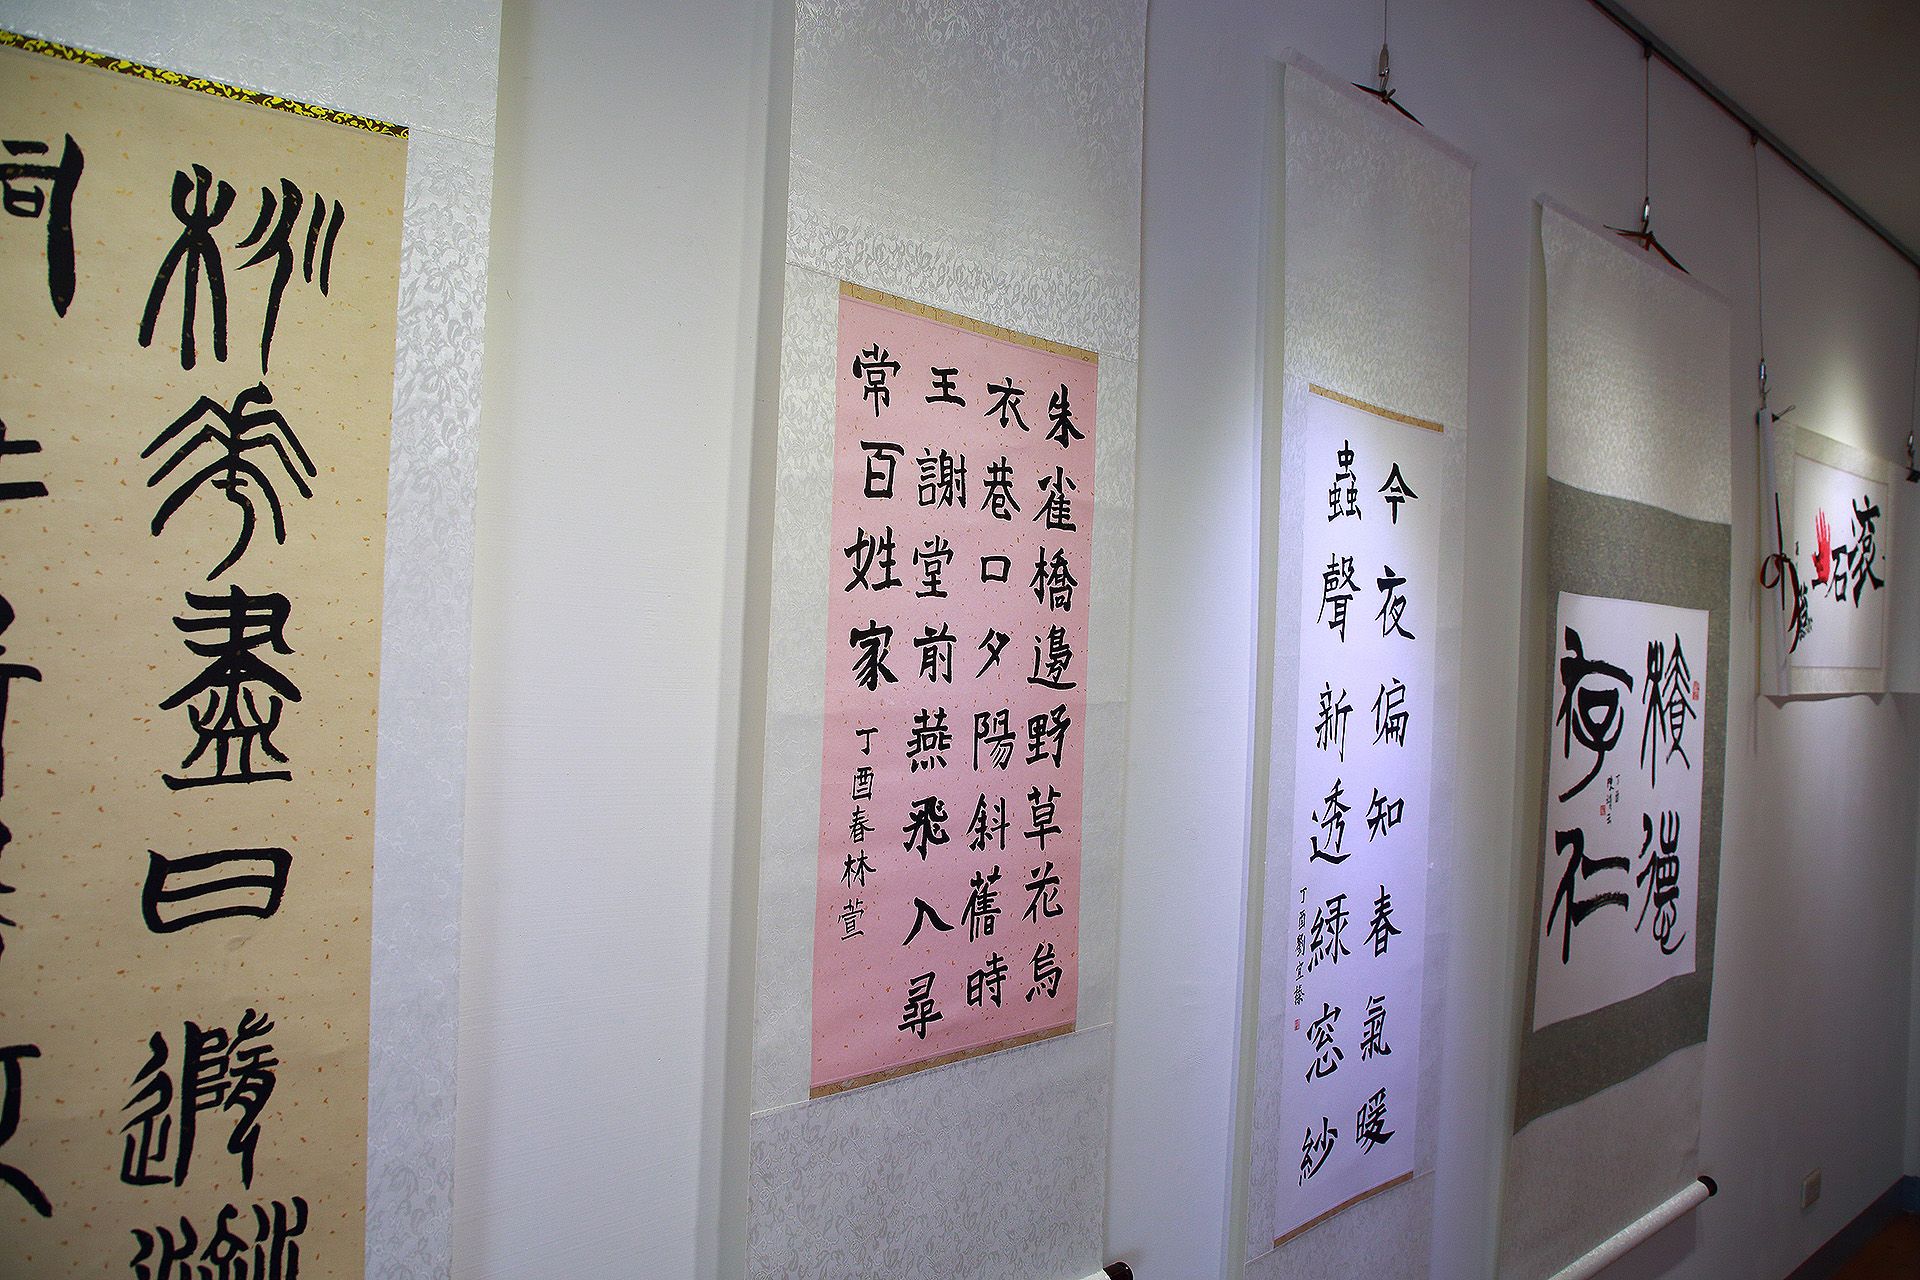 桃花盡日隨流
朱雀橋邊野草花烏
衣巷口夕陽斜舊時
王謝堂前燕飛入尋
常百姓家
丁酉春林萱
今夜偏知春氣暖
蟲聲新透綠窓紗
丁酉劉宜榛
積德
存仁
丁酉
滾石